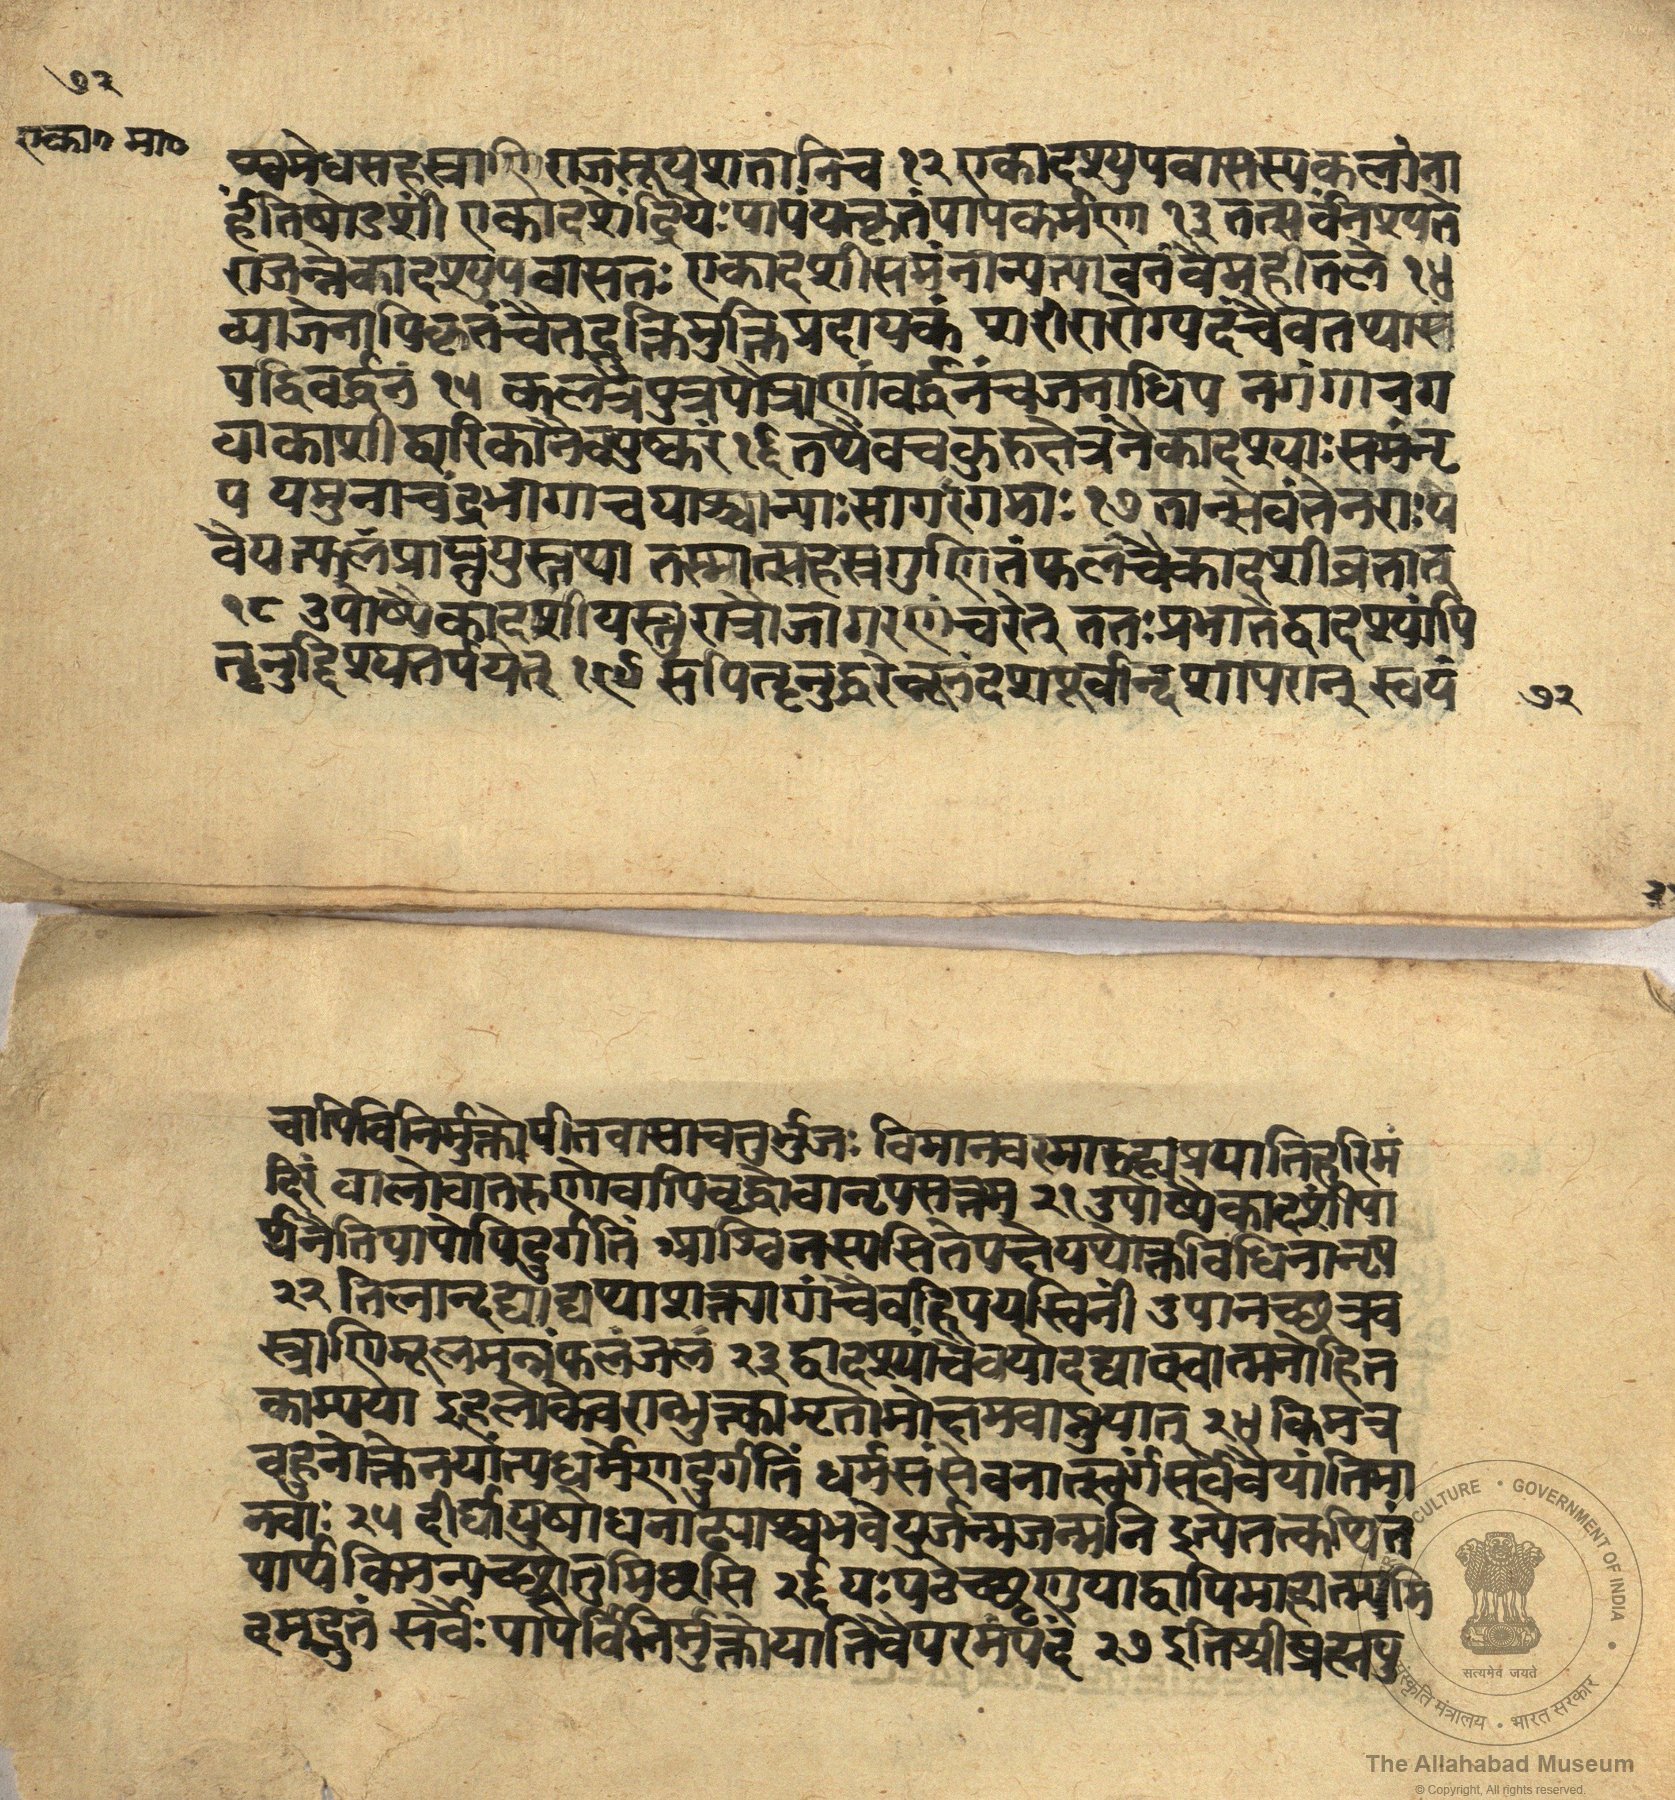 ७२
एका० मा०
श्वमेधसहस्राणि राजसूयशतानि च १२ एकादश्युपवासस्य कलां ना
र्हंति षोडशीं एकादशेंद्रियैः पापं यत्कृतं पापकर्मणा १३ तत्सर्वं नश्यते
राजन्नेकादश्युपवासतः एकादशीसमं नान्यत्पावनं वै महीतले १४
व्याजेनापि कृतं चैतद्भुक्तिमुक्तिप्रदायकं शरीरारोग्यदं चैव तथा सं
पद्विवर्द्धनं १५ कलत्रपुत्रपौत्राणां वर्द्धनं च जनाधिप न गंगा न ग
या काशी द्वारिका नैव पुष्करं १६ तथैव च कुरुक्षेत्रं नैकादश्याः समं नृ
प यमुना चंद्रभागा च याश्चान्याः सागरंगमाः १७ तान्सेवंते नराः य
वै यत्फलं प्राप्नुयुस्तथा तस्मात्सहस्रगुणितं फलं चैकादशीव्रतात्
१८ उपोष्यैकादशीं यस्तु रात्रौ जागरणं चरेत् ततः प्रभाते द्वादश्यां पि
तृनुद्दिश्य तर्पयेत् १९ स पितृनुद्धरेन्नूनं दश पूर्वान्दशापरान् स्वयं
७२
चापि विनिर्मुक्तो पीतवासाचतुर्भुजः विमानवरमारुह्य प्रयाति हरिमं
दिरं बालो वा तरुणो वापि वृद्धो वा नृपसत्तम् २१ उपोष्यैकादशीं पा
र्थ नैति पापोपि दुर्गतिं आश्विनस्य सिते पक्षे यथोक्तविधिना नृप
२२ तिलान्दद्याद्यथाशक्त्या गां चैव हि पयस्विनीं उपानच्छत्रव
स्त्राणि मूलमन्नं फलं जलं २३ द्वादश्यां चैव यो दद्याववात्मनो हित
काम्यया इहलोके वरान्भुक्त्वा मृतो मोक्षमवाप्नुयात् २४ किमत्र
बहुनोक्तेन यांत्यधर्मेण दुर्गतिं धर्मसंसेवनात्स्वर्गं सर्वे वै यांति मा
नवाः २५ दीर्घायुषो धनाढ्याश्च भवेयुर्जन्मजन्मनि इत्येतत्कथितं
पार्थ किमन्यच्छ्रोतुमिच्छसि २६ यः पठेच्छृणुयाद्वापि माहात्म्यमि
दमद्भुतं सर्वैः पापैर्विनिर्मुक्तो याति वै परमं पदं २७ इति श्रीब्रह्मपु
CULTURE • GOVERNMENT OF INDIA •
सत्यमेव जयते
संस्कृति मंत्रालय • भारत सरकार
The Allahabad Museum
© Copyright, All rights reserved.